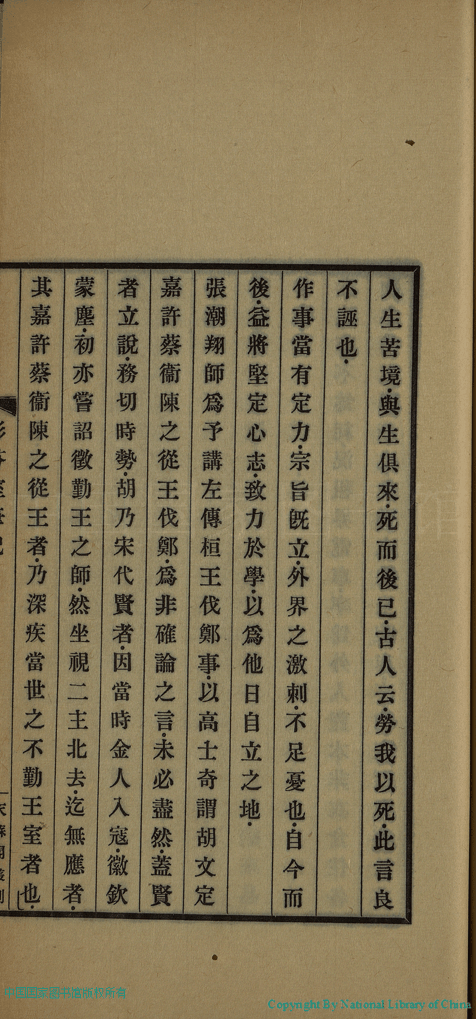 人生苦境·與生俱來·死而後已·古人云·勞我以死·此言良
不誣也·
作事當有定力·宗旨旣立·外界之激刺·不足憂也·自今而
後·益將堅定心志·致力於學·以爲他日自立之地·
張潮翔師爲予講左傳桓王伐鄭事·以高士奇謂胡文定
嘉許蔡衞陳之從王伐鄭·爲非確論之言·未必盡然·蓋賢
者立說·務切時勢·胡乃宋代賢者·因當時金人入寇·徽欽
蒙塵·初亦嘗詔徵勤王之師·然坐視二主北去·迄無應者·
其嘉許蔡衞陳之從王者·乃深疾當世之不勤王室者也·
Copyright By National Library of China